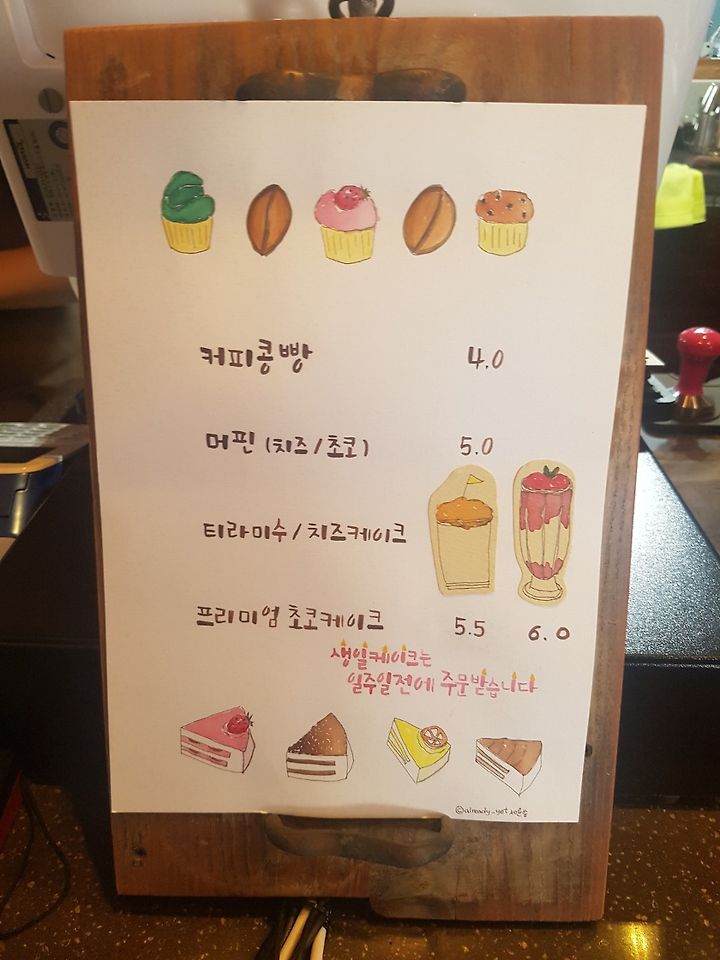 커피콩빵 4.0
머핀 (치즈/초코) 5.0
티라미수/치즈케이크
프리미엄 초코케이크 5.5 6.0
생일케이크는
일주일전에 주문받습니다
©already_yet